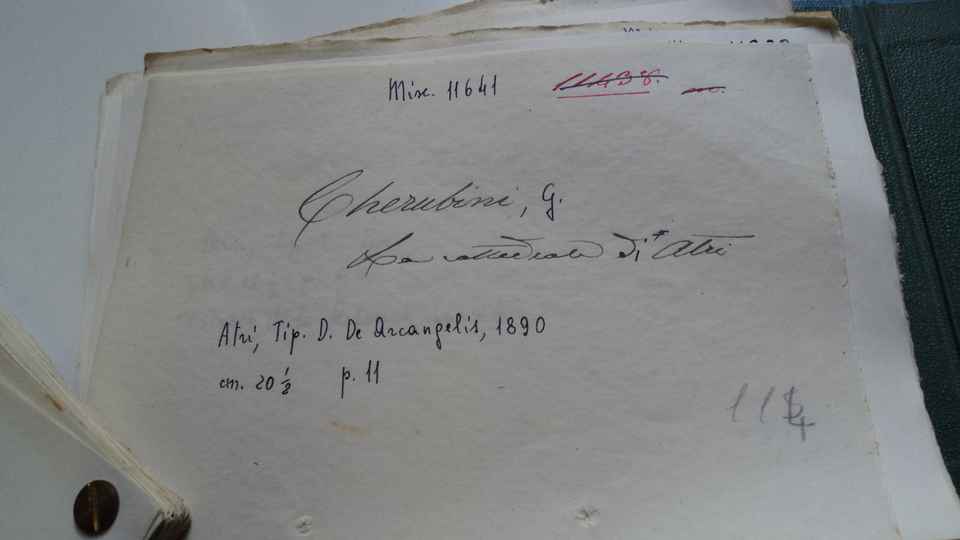 Misc. 11641
Cherubini, G.
La cattedrale di Atri
Atri, Tip. D. De Arcangelis, 1890
cm. 20 ½ p. 11